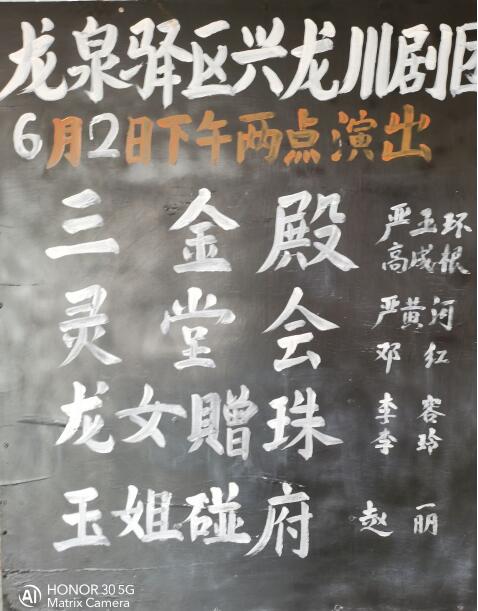 龙泉驿区兴龙川剧团
6月2日下午两点演出
三金殿 严玉环 高成根
灵堂会 严黄河 邓红
龙女赠珠 李容 李玲
玉姐碰府 赵丽
AI HONOR 30 5G
Matrix Camera